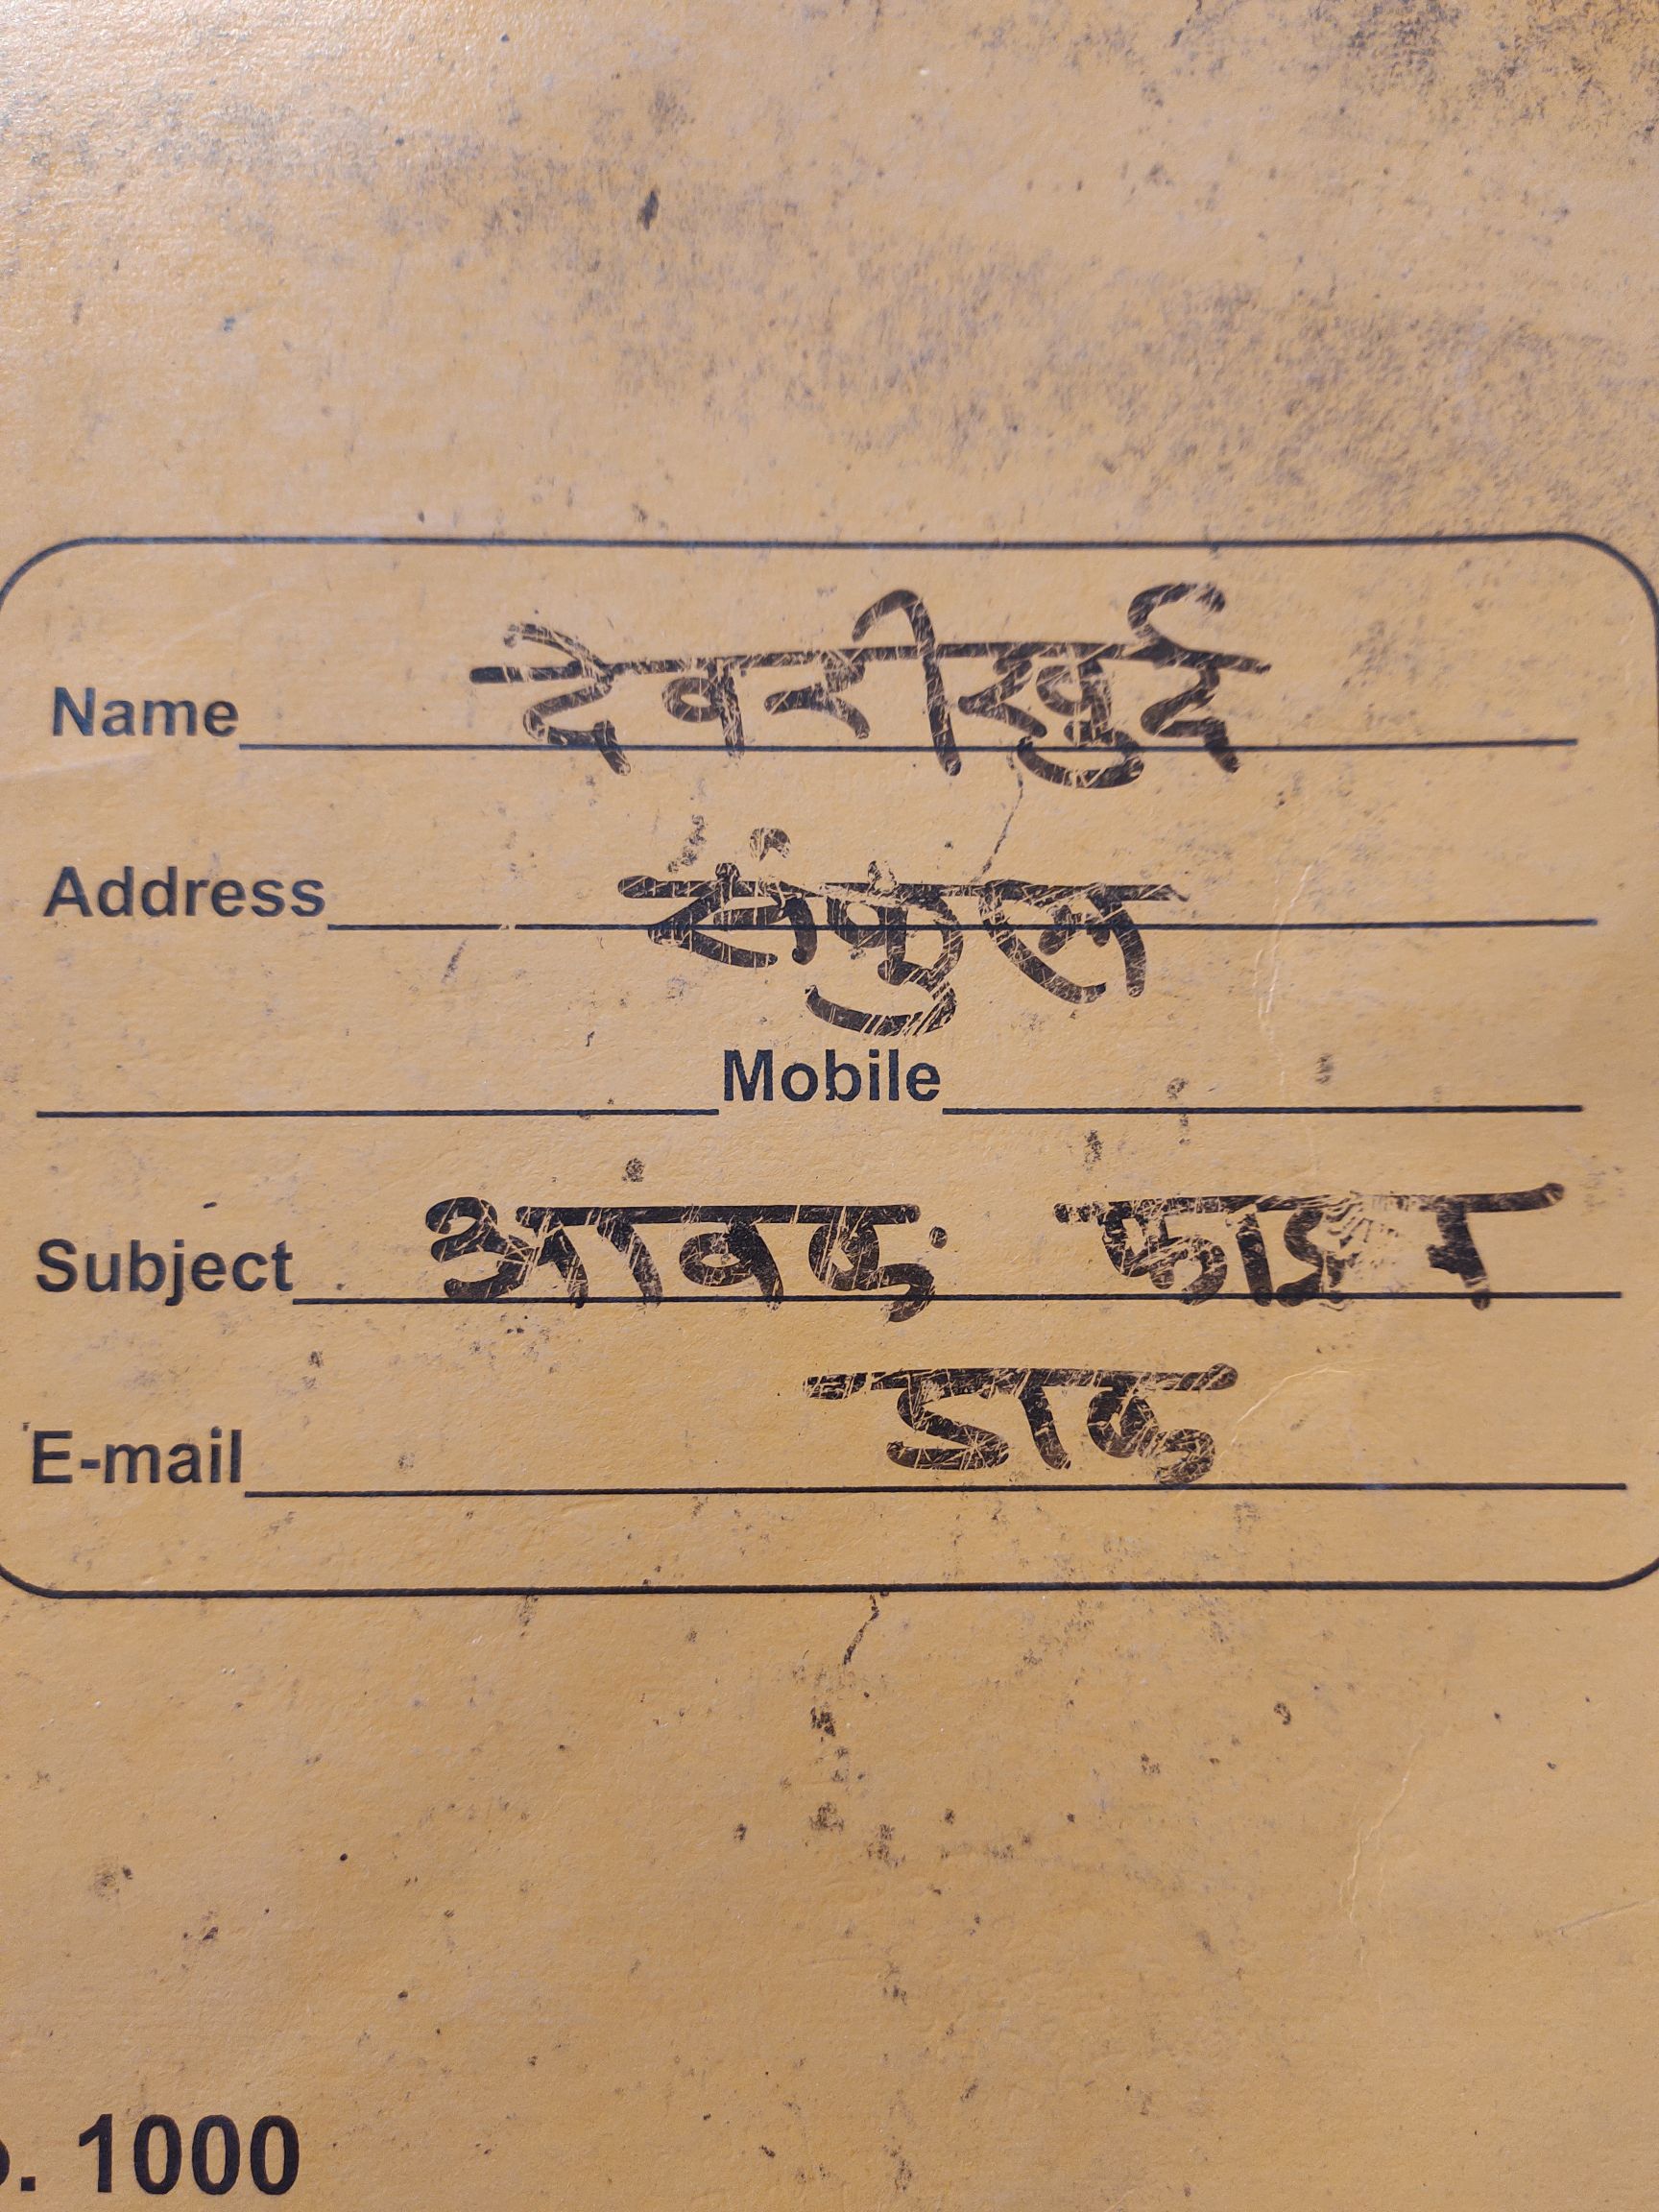 Name देवरीखुर्द
Address संकुल
Mobile
Subject आवक
E-mail डाक
. 1000